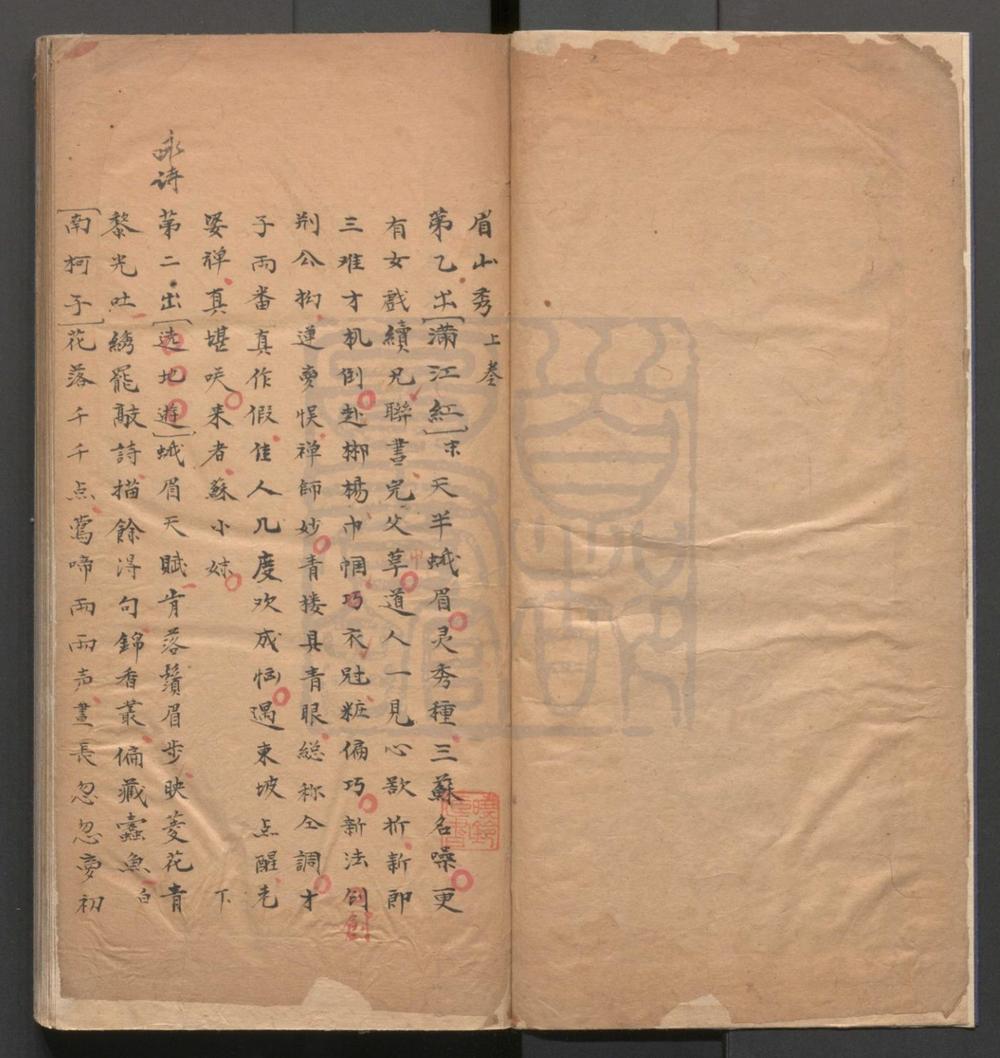 眉山秀 上卷
第乙出[满江紅]末 天半蛾眉灵秀種三蘇名噪更
有女戲續兄聯書完父草道人一見心歆折新郎
三难才机倒赴梆楊巾帼巧衣冠粧偏巧新法刱創
荆公拗連夢悮禅師妙青楼具青眼総称仝調才
子两番真作假佳人几度欢成恼遇東坡点醒老
婆禅真堪咲来者蘇小妹 下
詠诗
第二出[选地遊]蛾眉天賦肯落鬚眉步映菱花青
黎光吐綉罷敲詩描餘得句錦香叢偏藏蠹魚 白
[南柯子]花落千千点鶯啼两两声晝長忽忽夢初